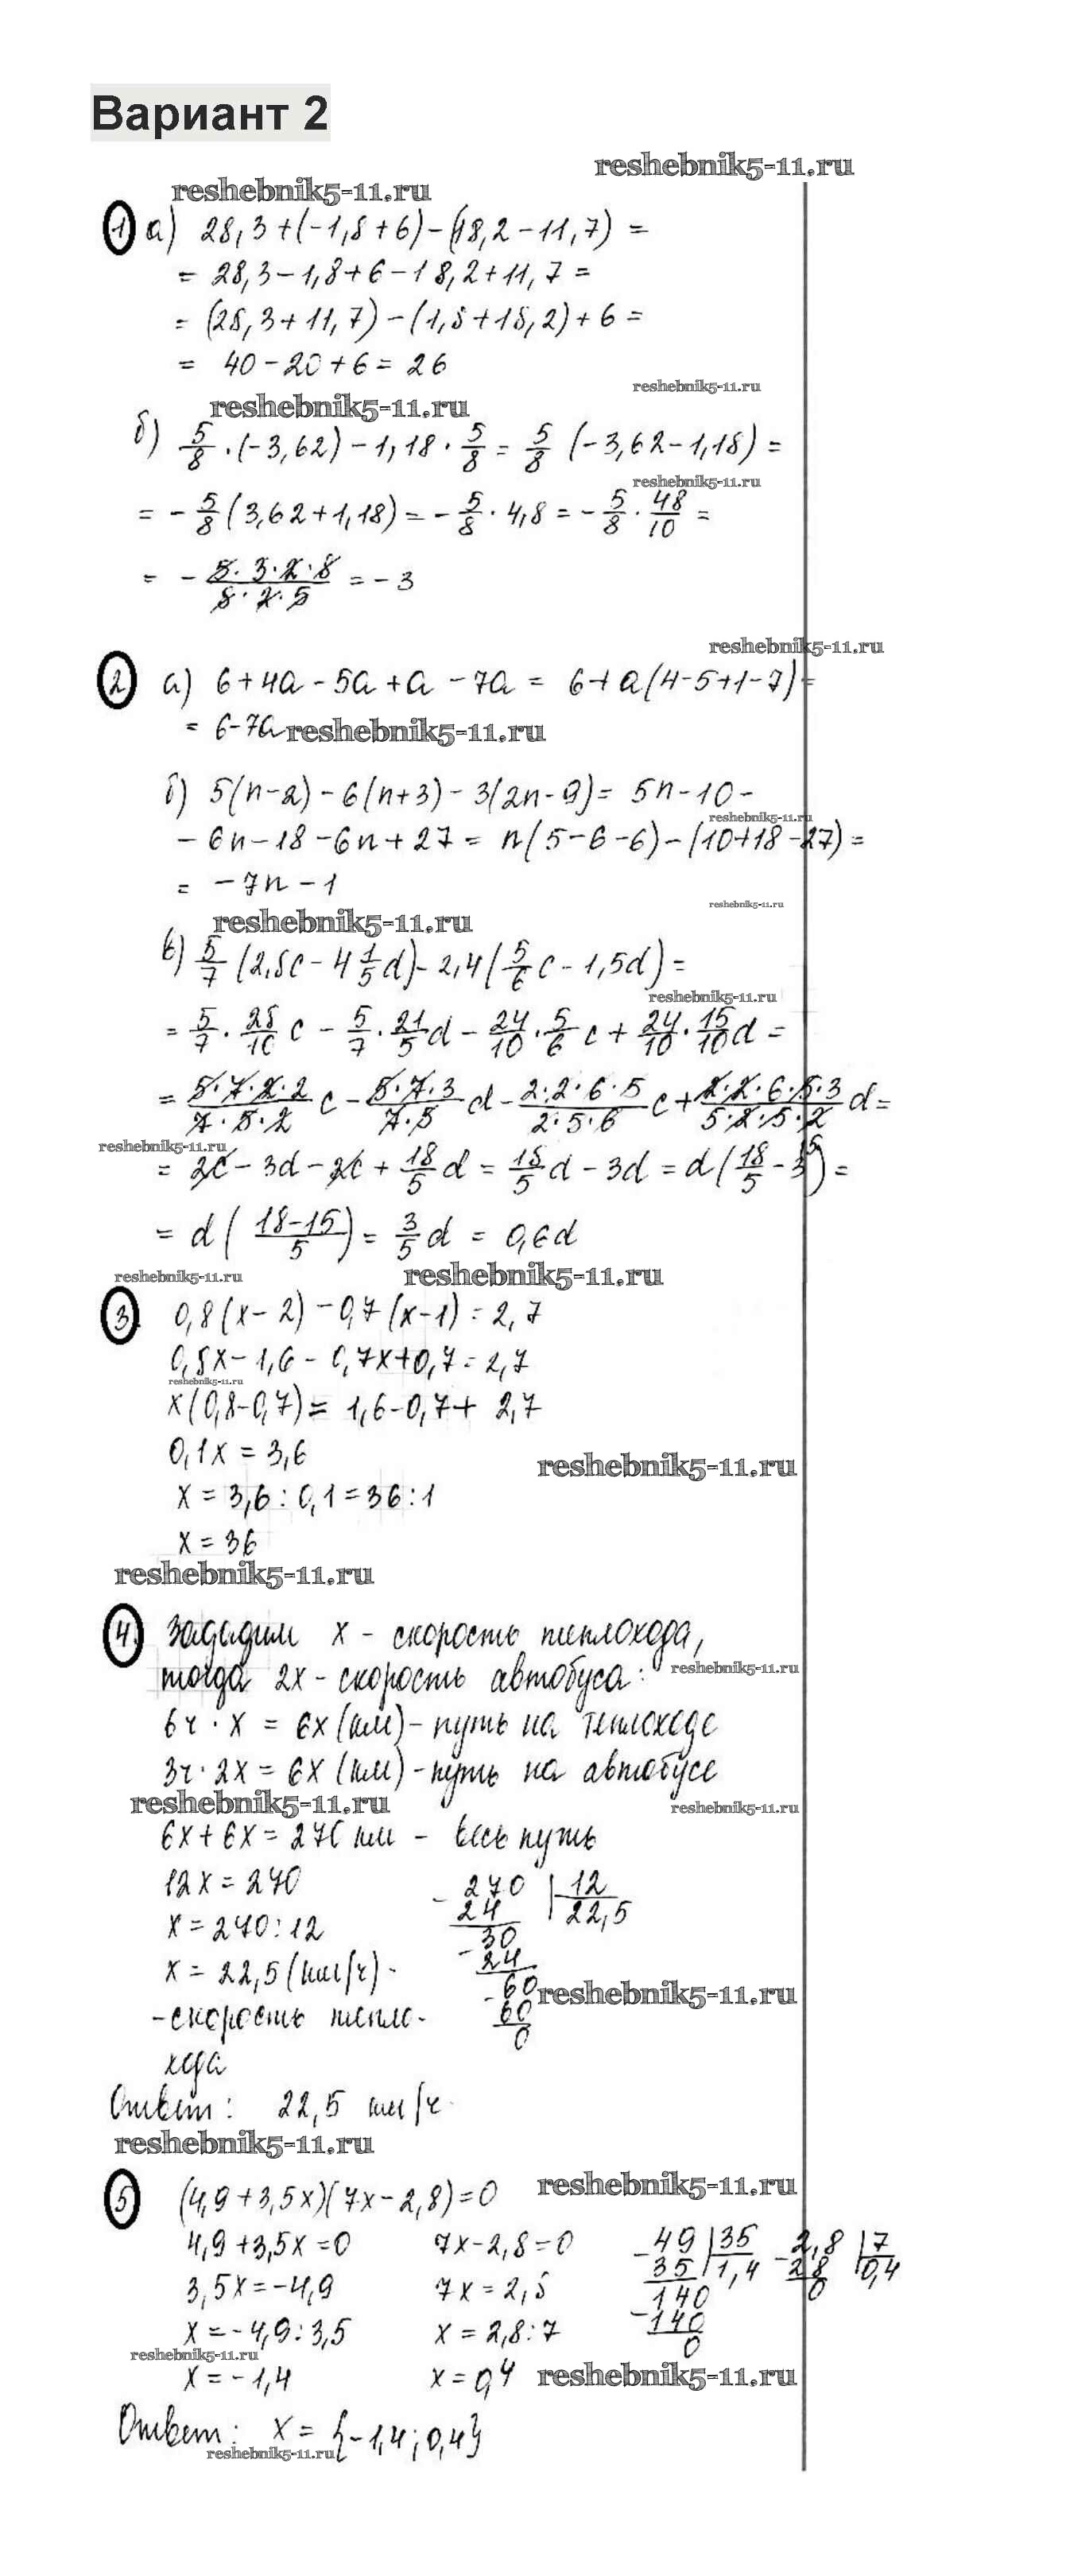 Вариант 2
reshebnik5-11.ru
reshebnik5-11.ru
1 а) 28,3+(-1,8+6)-(18,2-11,7) =
= 28,3-1,8+6-18,2+11,7 =
= (28,3+11,7)-(1,8+18,2)+6 =
= 40-20+6 = 26
reshebnik5-11.ru
reshebnik5-11.ru
б) 5/8 · (-3,62) - 1,18 · 5/8 = 5/8 (-3,62-1,18) =
reshebnik5-11.ru
= - 5/8 (3,62+1,18) = - 5/8 · 4,8 = - 5/8 · 48/10 =
= - 5·3·2·8/8·2·5 = -3
reshebnik5-11.ru
2 а) 6+4a-5a+a-7a = 6+a(4-5+1-7) =
= 6-7a
reshebnik5-11.ru
б) 5(n-2)-6(n+3)-3(2n-9) = 5n-10-
reshebnik5-11.ru
-6n-18-6n+27 = n(5-6-6)-(10+18-27) =
= -7n-1
reshebnik5-11.ru
reshebnik5-11.ru
в) 5/7 (2,8c - 4 1/5 d) - 2,4 (5/6 c - 1,5d) =
reshebnik5-11.ru
= 5/7 · 28/10 c - 5/7 · 21/5 d - 24/10 · 5/6 c + 24/10 · 15/10 d =
= 5·7·2·2/7·5·2 c - 5·7·3/7·5 d - 2·2·6·5/2·5·6 c + 2·2·6·5·3/5·2·5·2 d =
reshebnik5-11.ru
= 2c - 3d - 2c + 18/5 d = 18/5 d - 3d = d (18/5 - 3) =
= d (18-15/5) = 3/5 d = 0,6d
reshebnik5-11.ru
reshebnik5-11.ru
3 0,8(x-2)-0,7(x-1) = 2,7
0,8x-1,6-0,7x+0,7 = 2,7
reshebnik5-11.ru
x(0,8-0,7) = 1,6-0,7+2,7
0,1x = 3,6
reshebnik5-11.ru
x = 3,6 : 0,1 = 36 : 1
x = 36
reshebnik5-11.ru
4 Зададим x - скорость теплохода,
reshebnik5-11.ru
тогда 2x - скорость автобуса:
6ч · x = 6x (км) - путь на теплоходе
3ч · 2x = 6x (км) - путь на автобусе
reshebnik5-11.ru
reshebnik5-11.ru
6x+6x = 270 км - весь путь
12x = 270
x = 270 : 12
x = 22,5 (км/ч) -
-скорость тепло-
хода
- 270 | 12
24 22,5
30
- 24
- 60
60
0
reshebnik5-11.ru
Ответ: 22,5 км/ч.
reshebnik5-11.ru
reshebnik5-11.ru
5 (4,9+3,5x)(7x-2,8) = 0
4,9+3,5x = 0 7x-2,8 = 0
3,5x = -4,9 7x = 2,8
x = -4,9 : 3,5 x = 2,8 : 7
reshebnik5-11.ru
x = -1,4 x = 0,4
- 49 | 35
35 1,4
140
- 140
0
- 2,8 | 7
28 0,4
0
reshebnik5-11.ru
Ответ: x = {-1,4; 0,4}
reshebnik5-11.ru